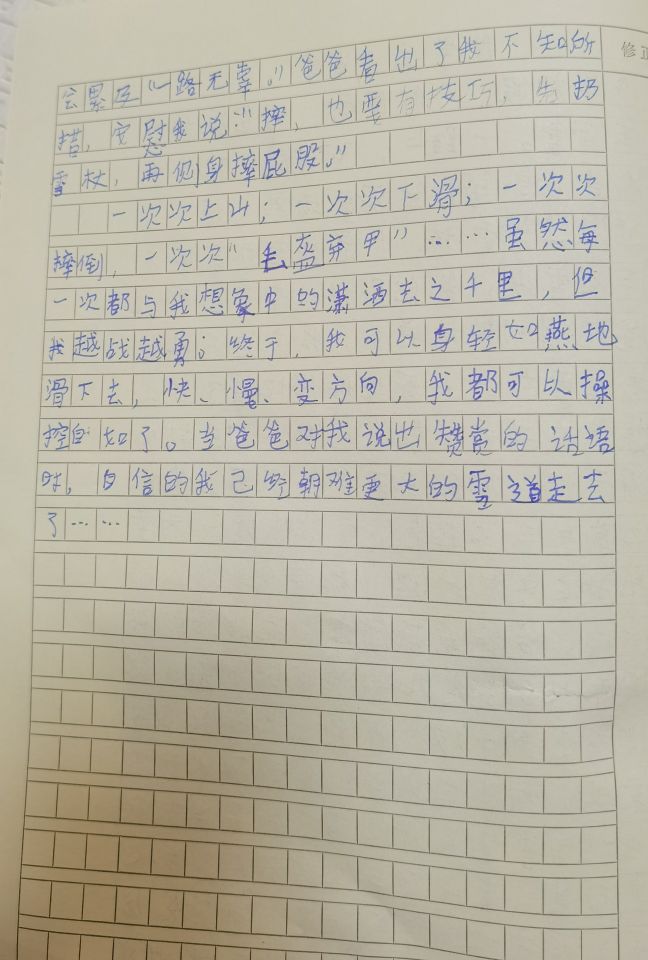 修正
会累及“一路无辜。”爸爸看出了我不知所
措，安慰我说：“摔，也要有技巧，先扔
雪杖，再侧身摔屁股。”
一次次上山；一次次下滑；一次次
摔倒，一次次“丢盔弃甲”……虽然每
一次都与我想象中的潇洒去之千里，但
我越战越勇。终于，我可以身轻如燕地
滑下去，快、慢、变方向，我都可以操
控自如了。当爸爸对我说出赞赏的话语
时，自信的我已经朝难更大的雪道走去
了……